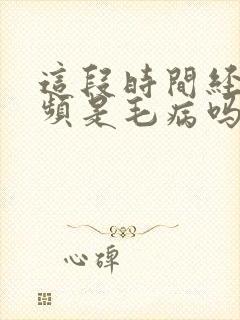 這段時間经
頻是毛病吗
心碑